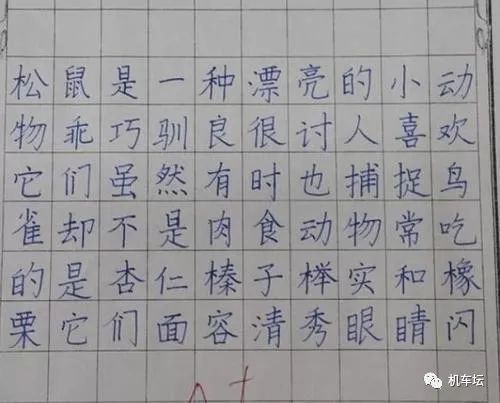 松鼠是一种漂亮的小动
物乖巧驯良很讨人喜欢
它们虽然有时也捕捉鸟
雀却不是肉食动物常吃
的是杏仁榛子榉实和橡
栗它们面容清秀眼睛闪
A+
机车坛